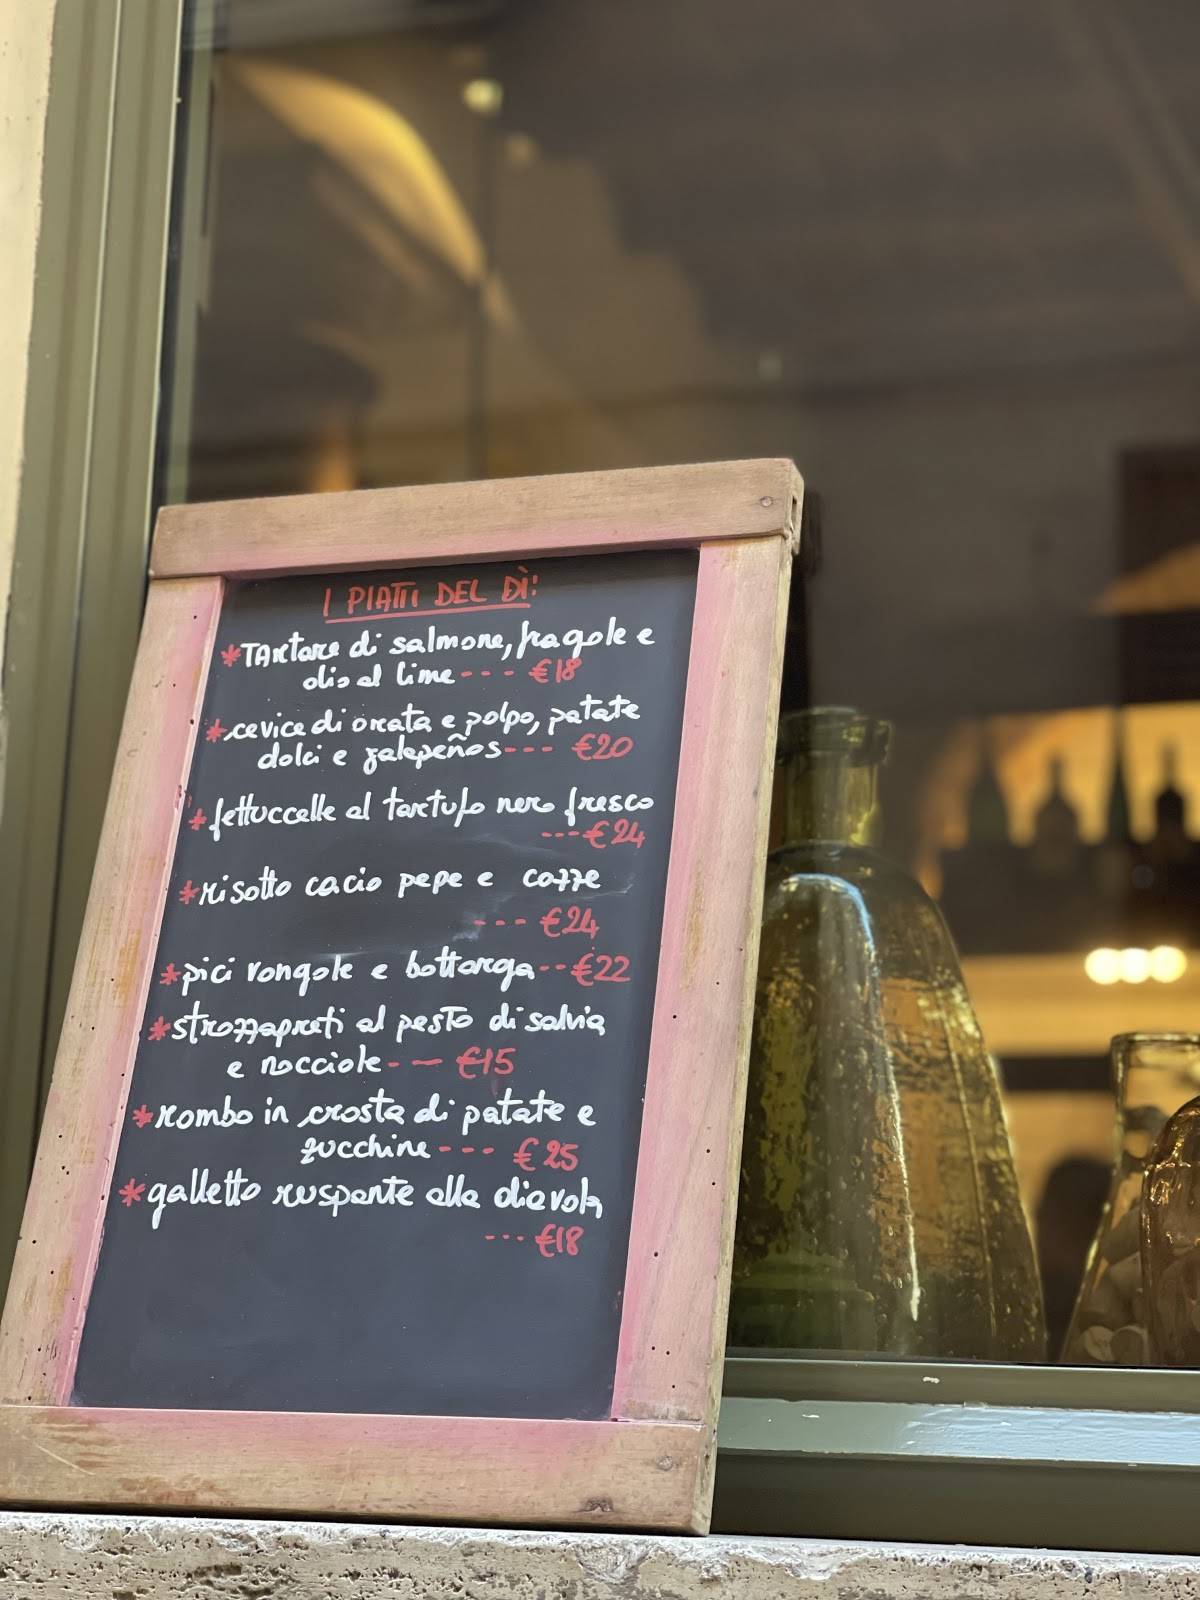 I PIATTI DEL DÌ:
*TARTARE di salmone, fragole e
olio al lime --- €18
*cevice di orata e polpo, patate
dolci e jalapeños --- €20
*fettuccelle al tartufo nero fresco
--- €24
*risotto cacio pepe e cozze
--- €24
*pici vongole e bottarga -- €22
*strozzapreti al pesto di salvia
e nocciole -- €15
*rombo in crosta di patate e
zucchine --- €25
*galletto ruspante alla diavola
--- €18